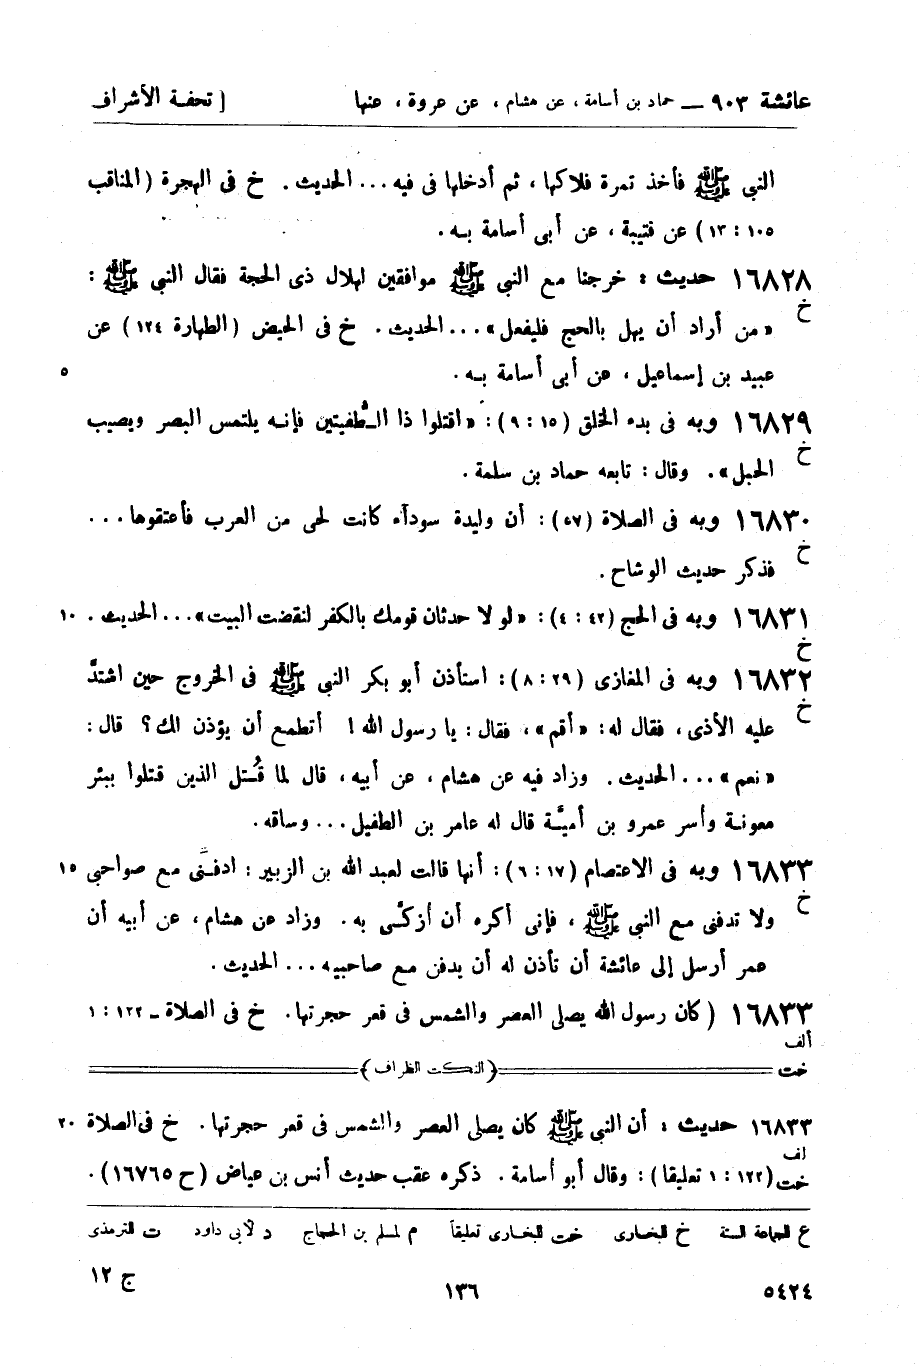 عائشة ٩٠٣ — حماد بن أسامة ، عن هشام ، عن عروة ، عنها [ تحفة الأشراف
النبي ﷺ فأخذ تمرة فلاكها ، ثم أدخلها فى فيه ... الحديث . خ فى الهجرة (المناقب
١٠٥ : ١٣) عن قتيبة ، عن أبى أسامة بـه .
١٦٨٢٨ حديث : خرجنا مع النبي ﷺ موافقين لهلال ذى الحجة فقال النبي ﷺ :
خ
« من أراد أن يهل بالحج فليفعل » ... الحديث . خ فى الحيض (الطهارة ١٢٤) عن
عبيد بن إسماعيل ، عن أبى أسامة بـه . ٥
١٦٨٢٩ وبه فى بدء الخلق (١٥ : ٩) : « اقتلوا ذا الـطُّفيتين فإنـه يلتمس البصر ويصيب
خ
الحبل » . وقال : تابعه حماد بن سلمة .
١٦٨٣٠ وبه فى الصلاة (٥٧) : أن وليدة سودآء كانت لحى من العرب فأعتقوها ...
خ
فذكر حديث الوشاح .
١٦٨٣١ وبه فى الحج (٤٢ : ٤) : « لو لا حدثان قومك بالكفر لنقضت البيت » ... الحديث . ١٠
خ
١٦٨٣٢ وبه فى المغازى (٢٩ : ٨) : استأذن أبو بكر النبي ﷺ فى الخروج حين اشتدَّ
خ
عليه الأذى ، فقال له : « أقم » ، فقال : يا رسول الله ! أتطمع أن يؤذن لك ؟ قال :
« نعم » ... الحديث . وزاد فيه عن هشام ، عن أبيه ، قال لما قُـتل الذين قتلوا ببئر
معونـة وأسر عمرو بن أميَّـة قال له عامر بن الطفيل ... وساقه .
١٦٨٣٣ وبه فى الاعتصام (١٧ : ٦) : أنها قالت لعبد الله بن الزبير : ادفـنّى مع صواحبى ١٥
خ
ولا تدفنى مع النبي ﷺ ، فإنى أكره أن أزكّـى به . وزاد عن هشام ، عن أبيه أن
عمر أرسل إلى عائشة أن تأذن له أن يدفن مع صاحبيه ... الحديث .
١٦٨٣٣ (كان رسول الله يصلى العصر والشمس فى قعر حجرتها . خ فى الصلاة ـ ١٢٢ : ١
ألف
خت (النكت الظراف)
١٦٨٣٣ حديث : أن النبي ﷺ كان يصلى العصر والشمس فى قعر حجرتها . خ فى الصلاة ٢٠
لف
خت (١٢٢ : ١ تعليقا) : وقال أبو أسامة . ذكره عقب حديث أنس بن عياض (ح ١٦٧٦٥) .
ع للجماعة الستة خ للبخارى خت للبخارى تعليقا م لمسلم بن الحجاج د لأبى داود ت للترمذى
٥٤٢٤ ١٣٦ ج ١٢